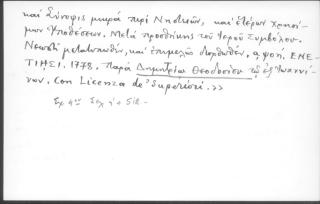 καὶ Σύνοψις μικρὰ περὶ Νηστειῶν, καὶ ἑτέρων χρησί-
μων Ὑποθέσεων. Μετὰ προσθήκης τοῦ Ἱεροῦ Συμβόλου.
Νεωστὶ μετατυπωθὲν, καὶ ἐπιμελῶς διορθωθὲν, αψοη, ΕΝΕ-
ΤΙΗΣΙ. 1778. Παρὰ Δημητρίῳ Θεοδοσίου τῷ ἐξ Ἰωαννί-
νων. Con Licenza de' Superiori.>>
Σχ 4ον Σελ